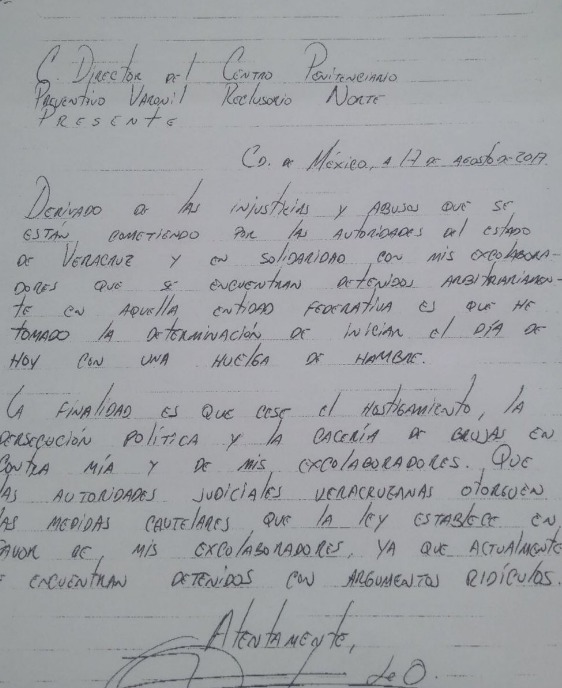 C. Director del Centro Penitenciario
Preventivo Varonil Reclusorio Norte
PRESENTE
Cd. de México, a 17 de Agosto de 2017.
Derivado de las injusticias y abusos que se
están cometiendo por las autoridades del estado
de Veracruz y en solidaridad con mis excolabora-
dores que se encuentran detenidos arbitrariamen-
te en aquella entidad federativa es que he
tomado la determinación de iniciar el día de
hoy con una huelga de hambre.
La finalidad es que cese el hostigamiento, la
persecución política y la cacería de brujas en
contra mía y de mis excolaboradores. Que
las autoridades judiciales veracruzanas otorguen
las medidas cautelares que la ley establece en
favor de, mis excolaboradores, ya que actualmente
se encuentran detenidos con argumentos ridículos.
Atentamente,
de O.